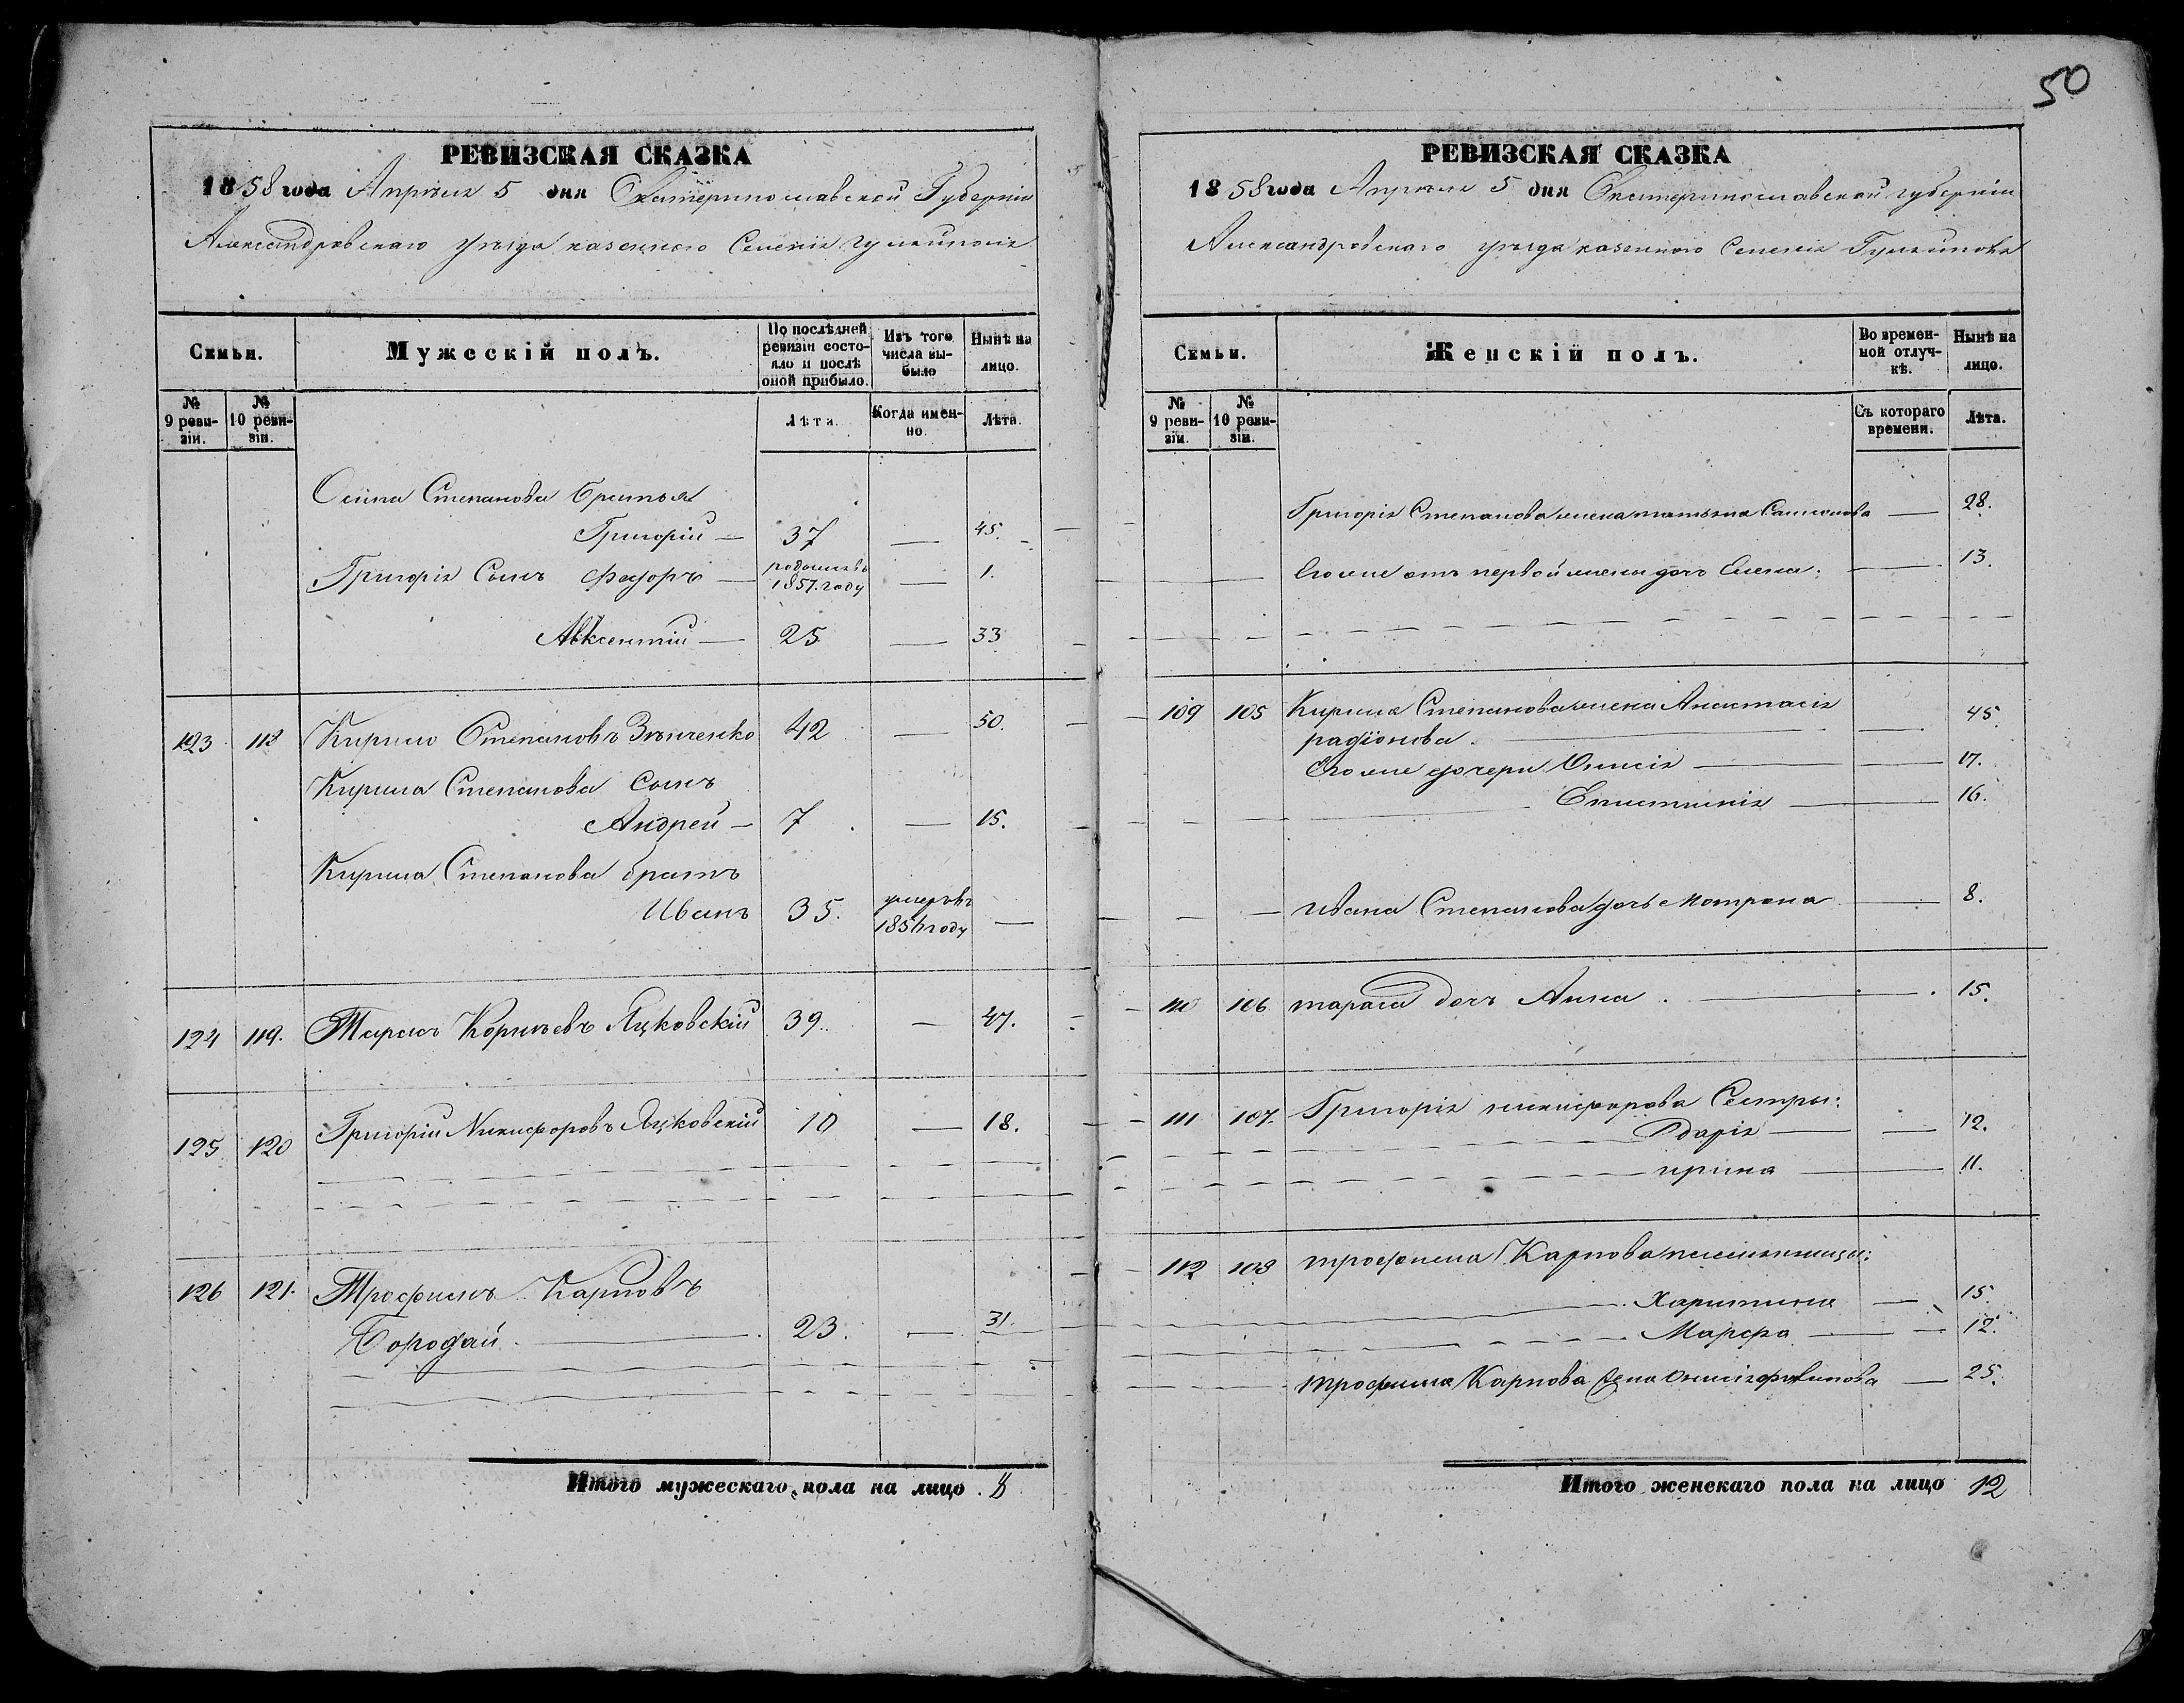 50
РЕВИЗСКАЯ СКАЗКА
1858 года Апреля 5 дня Екатеринославской Губерніи
Александровскаго уезда казенного Селенія Гуляйполя
Семьи.
Мужескій полъ.
По послѣдней ревизіи состояло и послѣ оной прибыло.
Изъ того числа выбыло
Нынѣ на лицо.
№ 9 ревизіи.
№ 10 ревизіи.
Лѣта.
Когда именно.
Лѣта.
Осипа Степанова братья
Григорій — 37 — 45.
Григорія Сынъ Федоръ — родился въ 1857 году — 1.
Авксентій — 25 — 33
123 118 Кирило Степановъ Зѣнченко 42 — 50.
Кирила Степанова Сынъ
Андрей — 7 — 15.
Кирила Степанова братъ
Иванъ 35. умеръ въ 1856 году —
124 119. Тарасъ Корнѣевъ Яцковскій 39. — 47.
125 120 Григорій Никифоровъ Яцковскій 10 — 18.
126 121. Трофимъ Карповъ
Бородай 23. — 31.
Итого мужескаго пола на лицо 8
РЕВИЗСКАЯ СКАЗКА
1858 года Апреля 5 дня Екатеринославской губерніи
Александровскаго уезда казенного Селенія Гуляйполя
Семьи.
Женскій полъ.
Во временной отлучкѣ.
Нынѣ на лицо.
№ 9 ревизіи.
№ 10 ревизіи.
Съ котораго времени.
Лѣта.
Григорія Степанова жена татьяна Самойлова — 28.
Его же отъ первой жены дочь Елена: — 13.
109 105 Кирила Степанова жена Анастасія
радіонова. — 45.
Его же дочери Онисія — 17.
Епистимія — 16.
Ивана Степанова дочь Мотрона — 8.
110 106 тараса дочь Анна — 15.
111 107. Григорія никифорова Сестры:
дарія — 12.
ирина — 11.
112 108 трофима Карпова племянницы:
Харитина — 15.
Марфа — 12.
трофима Карпова жена Онисія — 25.
Итого женскаго пола на лицо 12